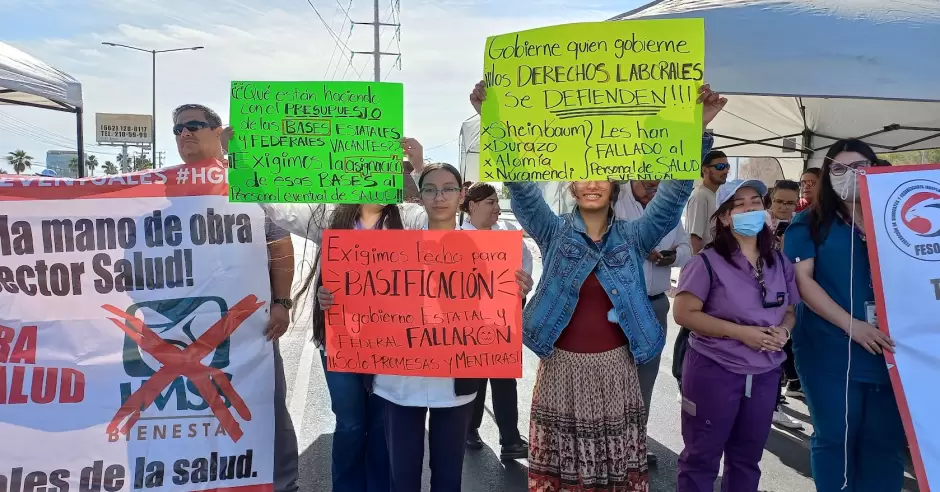 (662) 128-0
TEL: 210-99-09
EVENTUALES #HG
la mano de obra
ector Salud!
RA
SALUD
IMSS
BIENESTAR
ales de la salud.
¿¿Qué están haciendo
con el PRESUPUESTO
de las BASES ESTATALES
y FEDERALES VACANTES??
¡Exigimos la asignación
de esas BASES al
Personal eventual de SALUD!
Exigimos techo para
BASIFICACIÓN
El gobierno ESTATAL y
FEDERAL FALLARON
¡¡Solo PROMESAS y MENTIRAS!!
Gobierne quien gobierne
¡¡¡los DERECHOS LABORALES
se DEFIENDEN!!!
x Sheinbaum
x Durazo
x Alomía
x Nucamendi
Les han
FALLADO al
Personal de SALUD
EVENTUAL
FESO
T